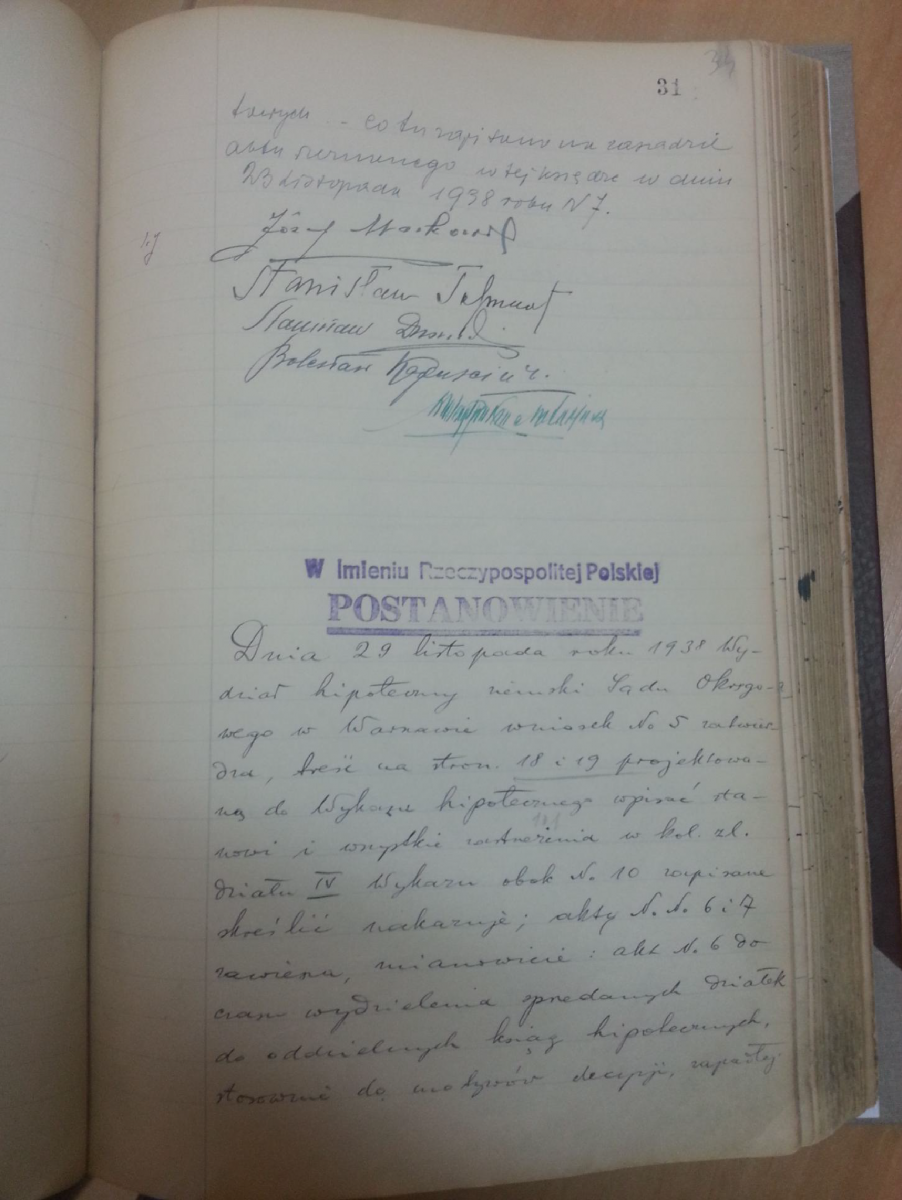 31
towych - co tu zapisano na zasadzie
aktu zeznanego w tej księdze w dniu
23 Listopada 1938 roku N 7.
Józef
Stanisław
Stanisław
Bolesław
W Imieniu Rzeczypospolitej Polskiej
POSTANOWIENIE
Dnia 29 listopada roku 1938 Wy-
dział hipoteczny ziemski Sądu Okręgo-
wego w Warszawie wniosek No 5 zatwier-
dza, treść na stron. 18 i 19 projektowa-
ną do Wykazu hipotecznego wpisać sta-
nowi i wszystkie zastrzeżenia w kol. zl.
działu IV Wykazu obok N. 10 zapisane
skreślić nakazuje; akty N. N. 6 i 7
zawiesza, mianowicie: akt N. 6 do
czasu wydzielenia sprzedanych działek
do oddzielnych ksiąg hipotecznych,
stosownie do motywów decyzji, zapadłej